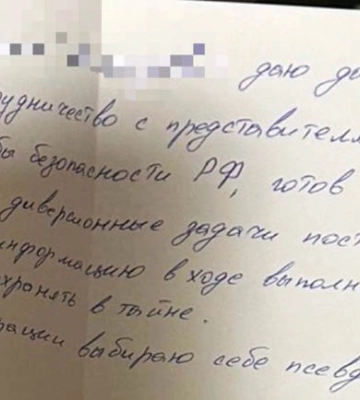 даю до
рудничество с представителя
бы безопасности РФ, готов
диверсионные задачи пост
информацию в ходе выполн
хранять в тайне.
рации выбираю себе псевд